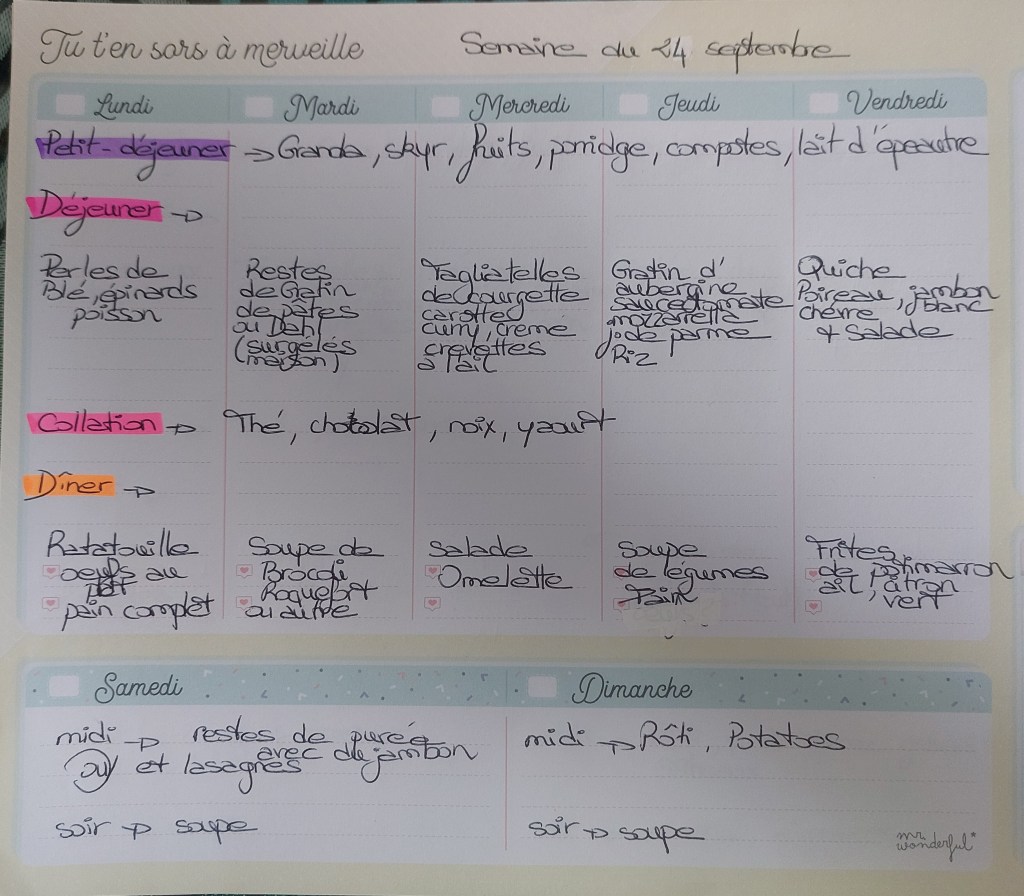 Tu t'en sors à merveille
Semaine du 24 septembre
Lundi
Mardi
Mercredi
Jeudi
Vendredi
Petit-déjeuner → Granola, skyr, fruits, porridge, compotes, lait d'épeautre
Déjeuner →
Perles de
Blé, épinards
poisson
Restes
de Gratin
de pâtes
ou Dahl
(surgelés
maison)
Tagliatelles
de courgette
carottes
curry, crème
crevettes
à l'ail
Gratin d'
aubergine
sauce tomate
mozzarella
j. de parme
Riz
Quiche
Poireau, jambon
chèvre blanc
+ Salade
Collation → Thé, chocolat, noix, yaourt
Dîner →
Ratatouille
oeufs au
plat
pain complet
Soupe de
Brocoli
Roquefort
ou autre
Salade
Omelette
Soupe
de légumes
Pain
Frites
de potimarron
ail, citron
vert
Samedi
midi → restes de purée
avec du jambon
ou et lasagnes
soir → soupe
Dimanche
midi → Rôti, Potatoes
soir → soupe
mr
wonderful*